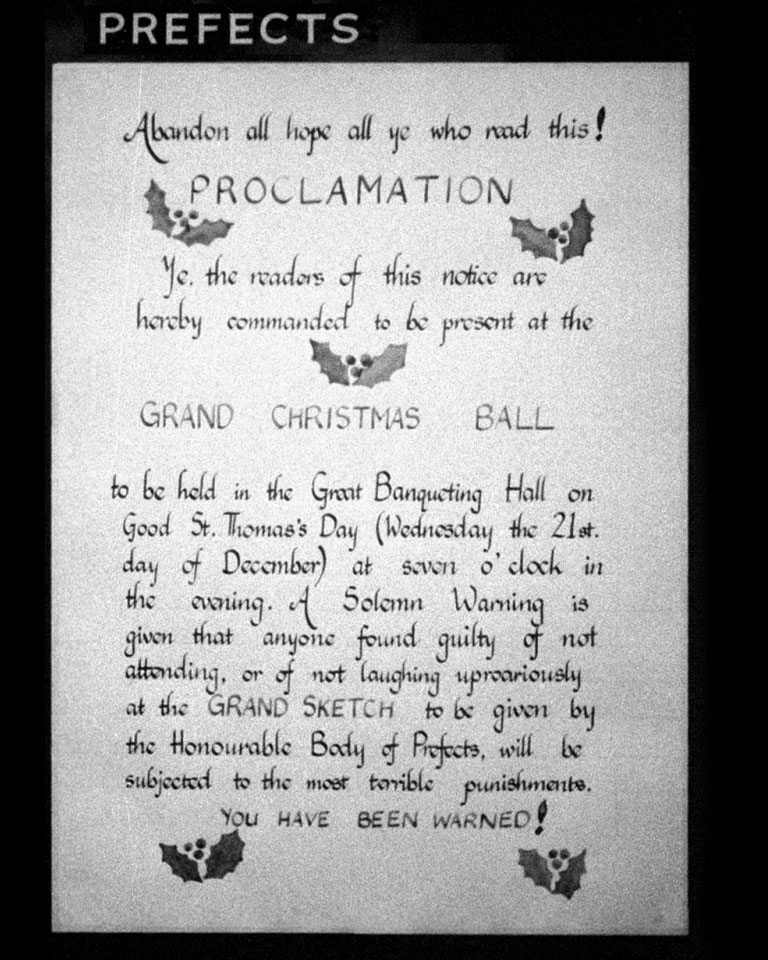 PREFECTS
Abandon all hope all ye who read this!
PROCLAMATION
Ye. the readers of this notice are
hereby commanded to be present at the
GRAND CHRISTMAS BALL
to be held in the Great Banqueting Hall on
Good St. Thomas's Day (Wednesday the 21st.
day of December) at seven o'clock in
the evening. A Solemn Warning is
given that anyone found guilty of not
attending, or of not laughing uproariously
at the GRAND SKETCH to be given by
the Honourable Body of Prefects, will be
subjected to the most terrible punishments.
YOU HAVE BEEN WARNED!